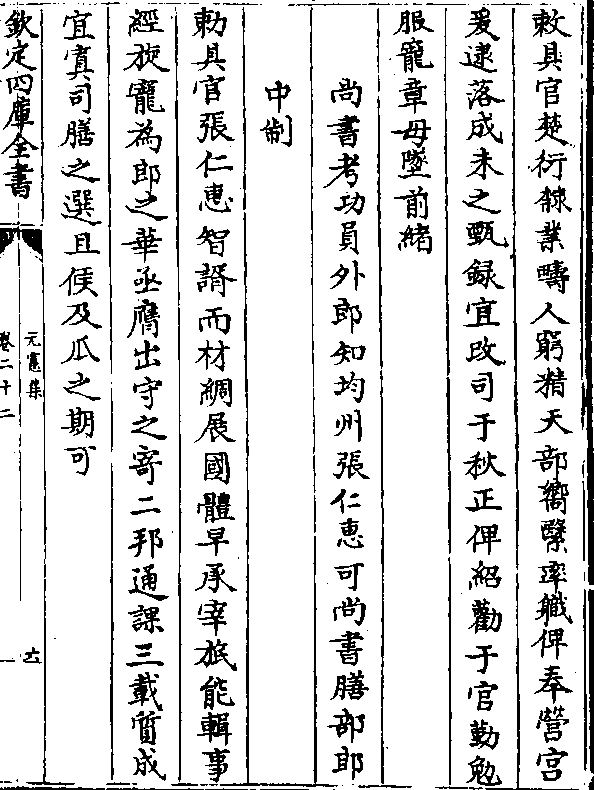 敕具官楚衍隸業疇人窮精天部嚮繄率職俾奉營宫
爰逮落成未之甄録宜改司于秋正俾紹勸于官勤勉
服寵章毋墜前緒
尚書考功員外郎知均州張仁惠可尚書膳部郎
中制
勅具官張仁惠智諝而材綢展國體早承宰旅能輯事
經旋寵為郎之華亟膺出守之寄二邦通課三載質成
宜寘司膳之選且俟及瓜之期可
欽定四庫全書
元憲集
卷二十二
六